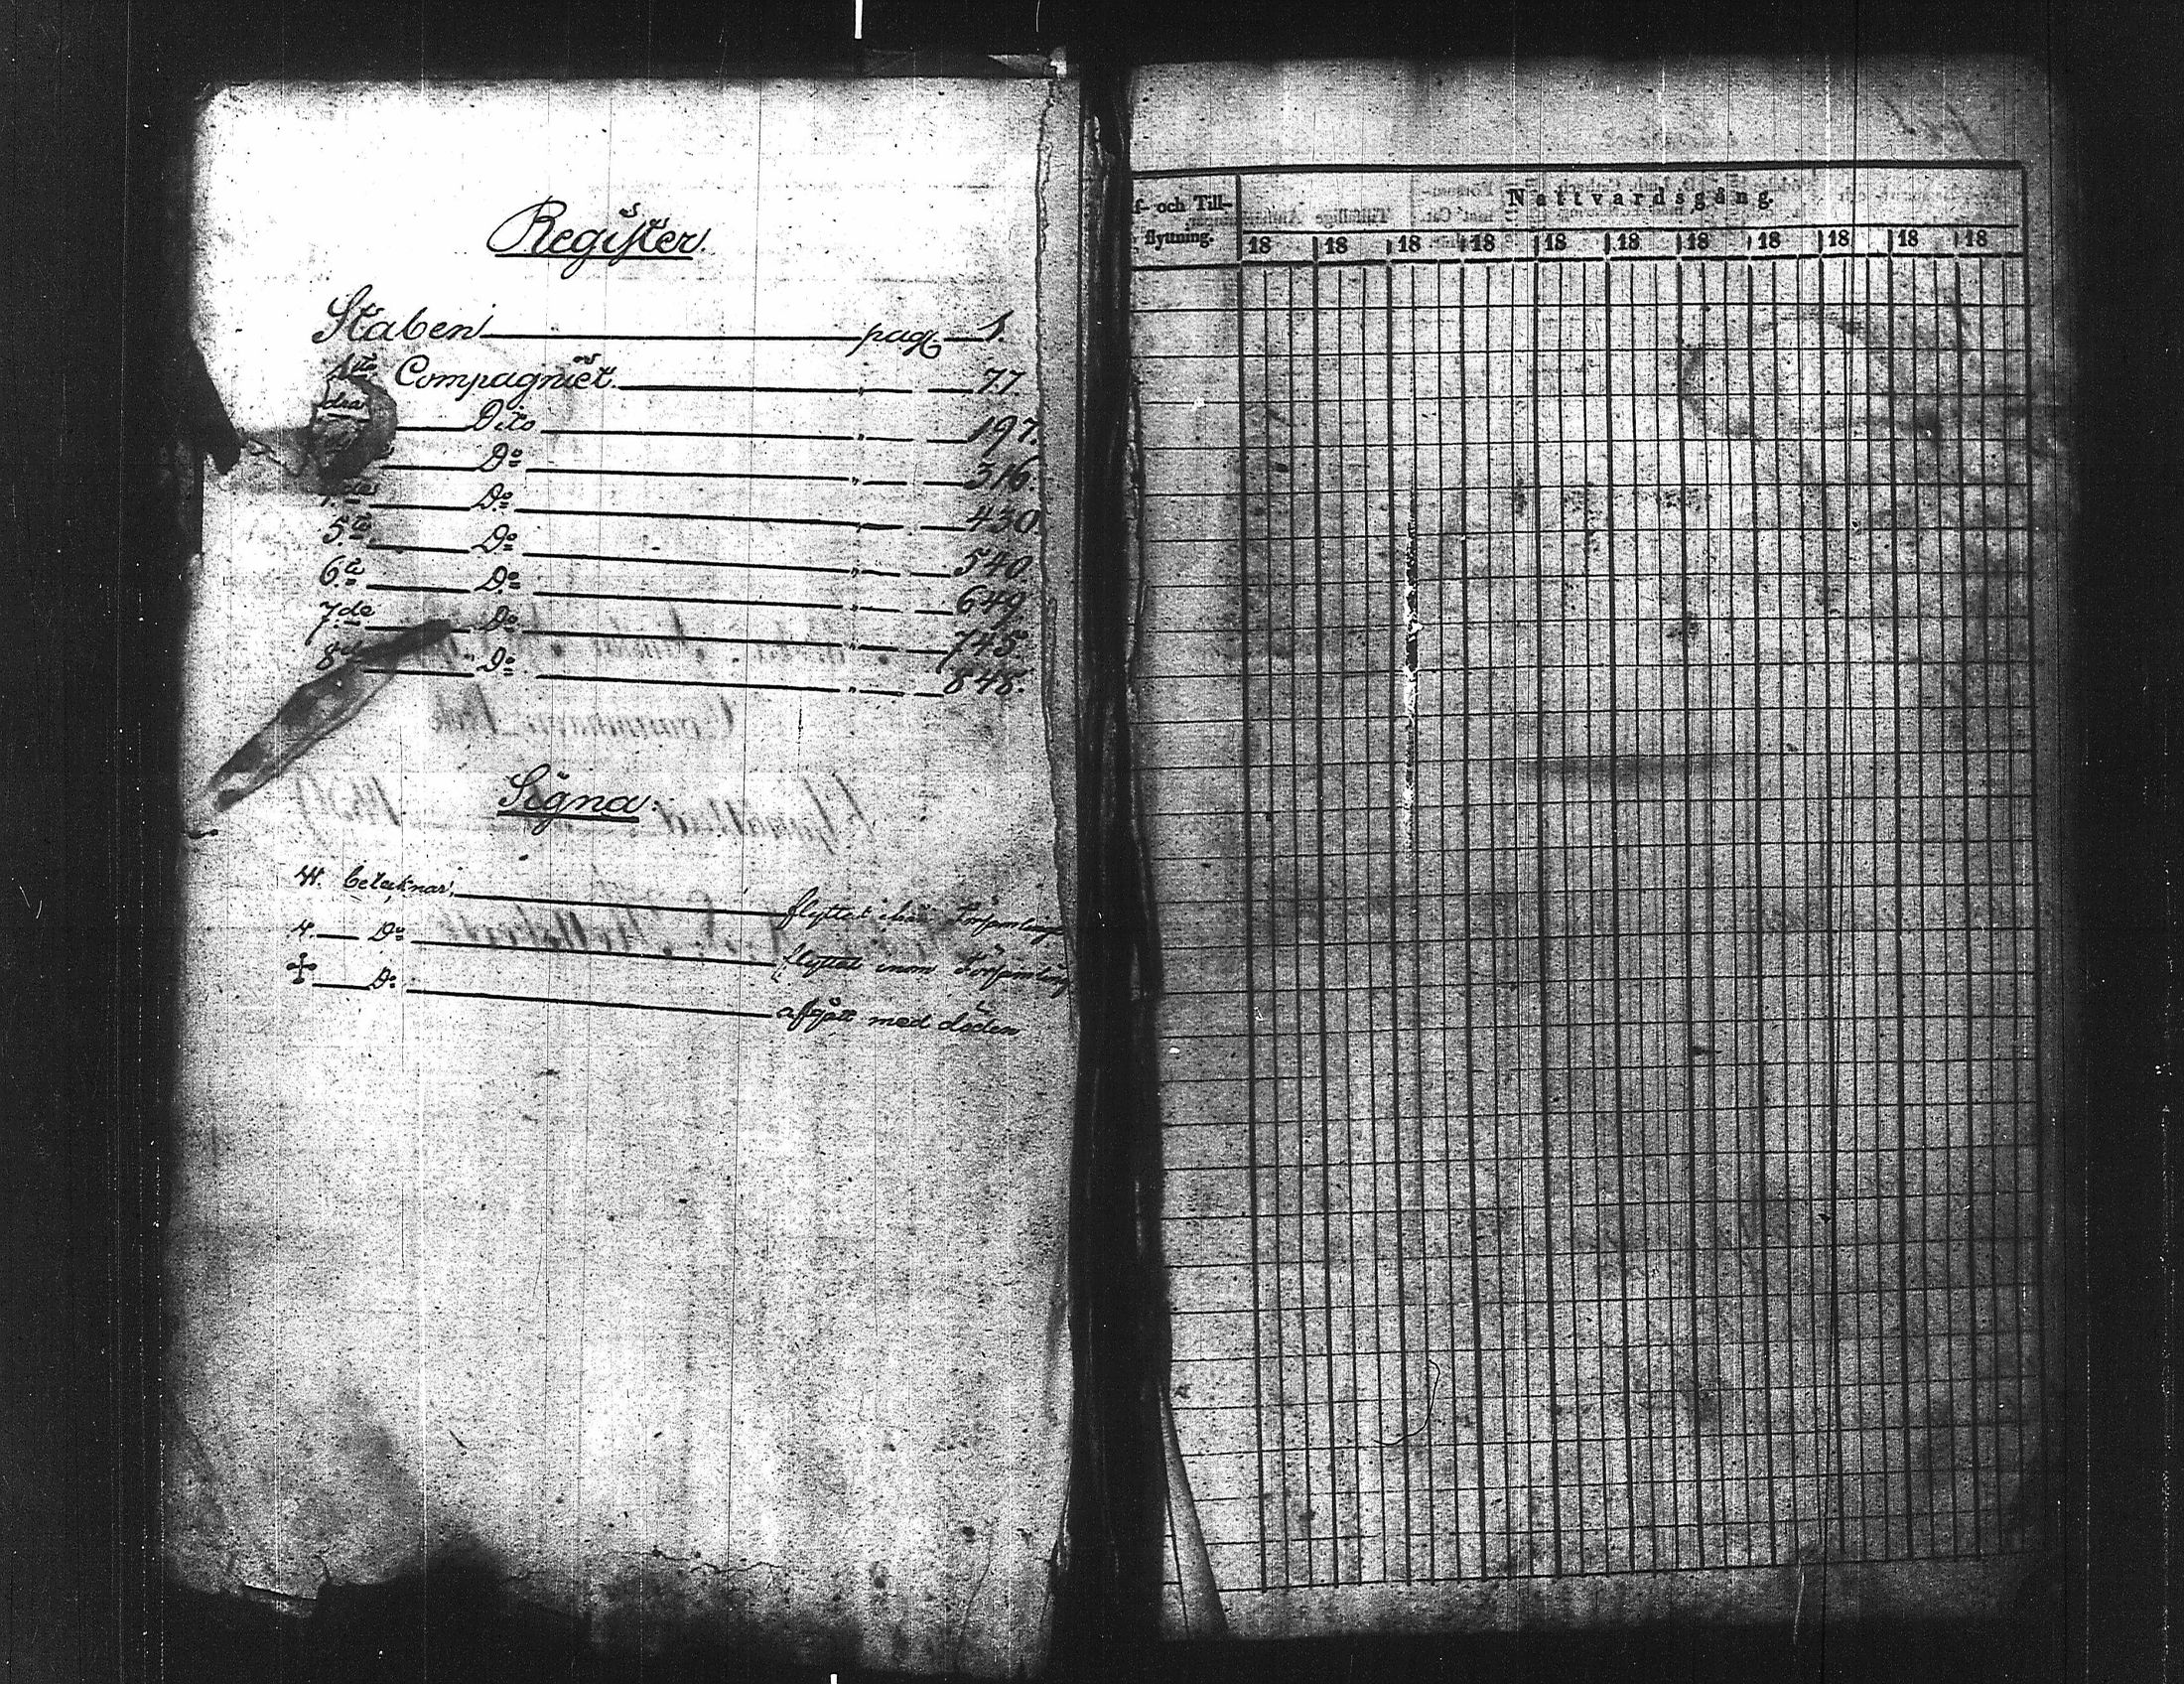 Register.
Staben pag. 1.
1sta Compagniet " 77.
Dito " 197.
Do " 316.
Do " 430.
5ta Do " 540.
6ta Do " 649.
7de Do " 745.
8de Do " 848.
Signa.
betecknar flyttat ifrån Församlingen
Do flyttat inom Församling
Do afgått med döden
f- och Till-
flyttning.
Nattvardsgång.
18 18 18 18 18 18 18 18 18 18 18